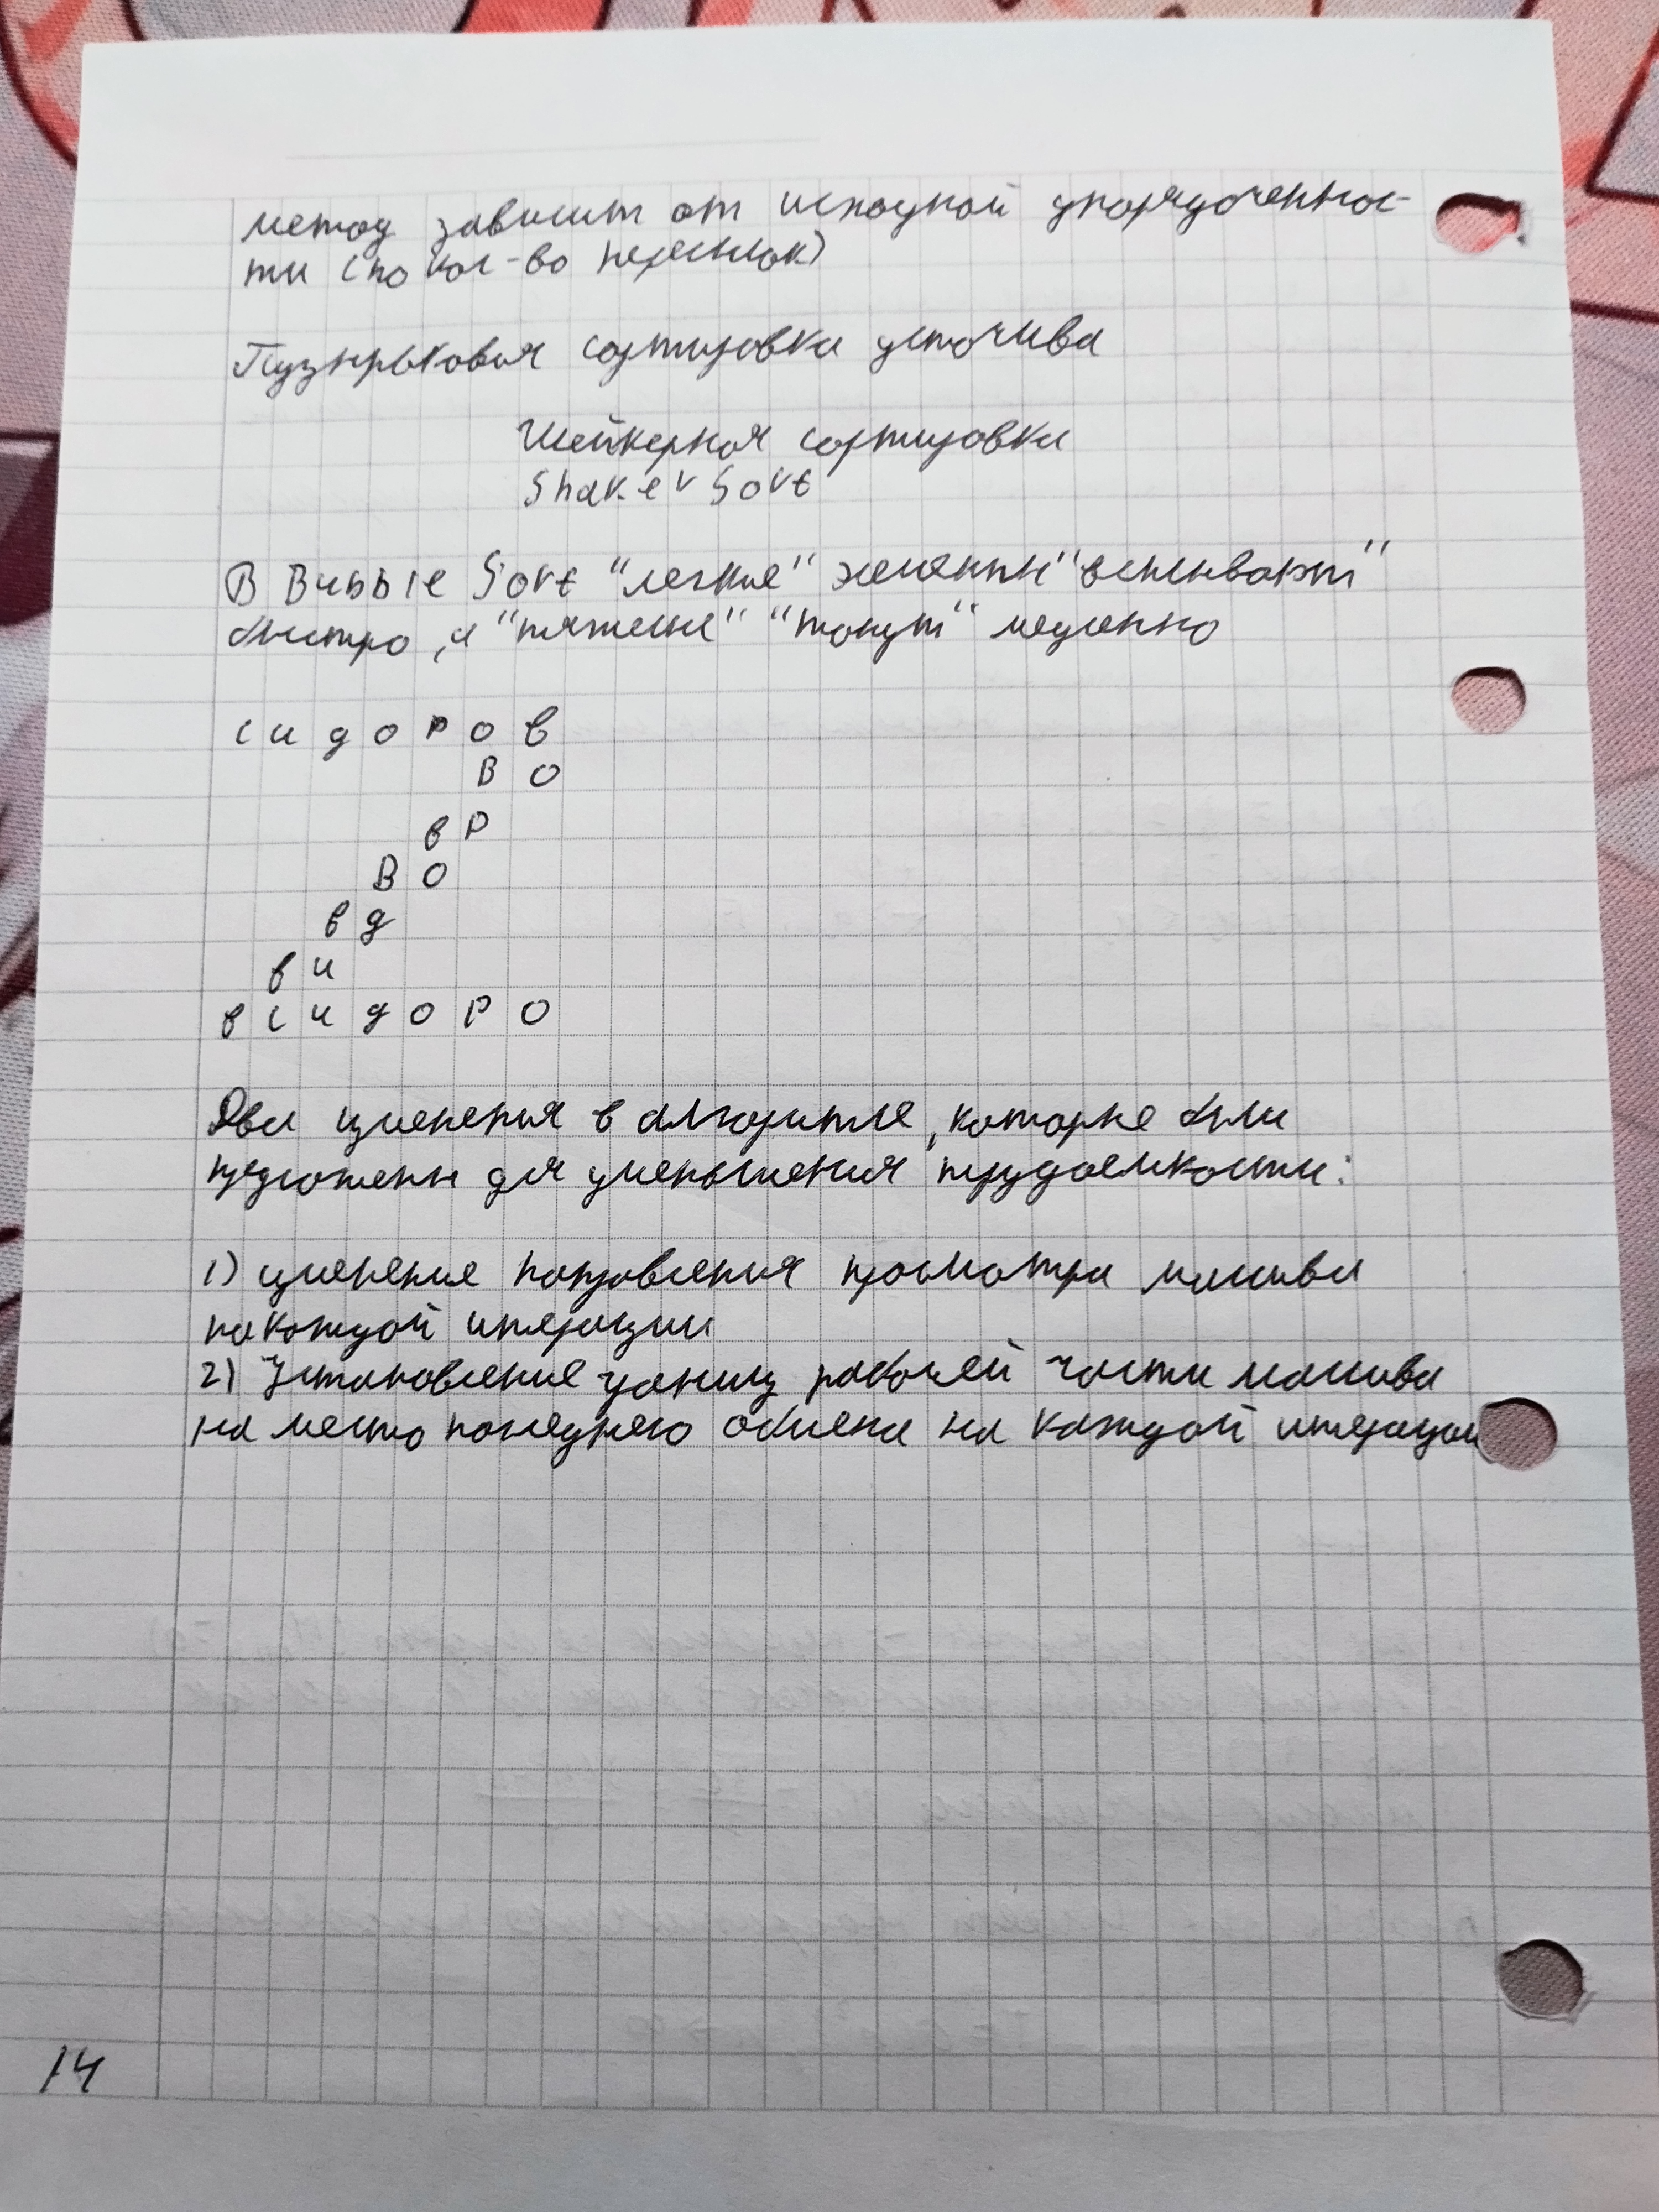 метод зависит от исходной упорядоченнос-
ти (по кол-во пересылок)
Пузырьковая сортировка усточива
Шейкерная сортировка
Shaker Sort
В Bubble Sort "легкие" элементы "всплывают"
быстро, а "тяжелые" "тонут" медленно
с и д о р о в
в о
в р
в о
в д
в и
в с и д о р о
Два изменения в алгоритме, которые были
предложены для уменьшения трудоемкости:
1) изменение направления просмотра массива
на каждой итерации
2) Установление границ рабочей части массива
на место последнего обмена на каждой итерации
14